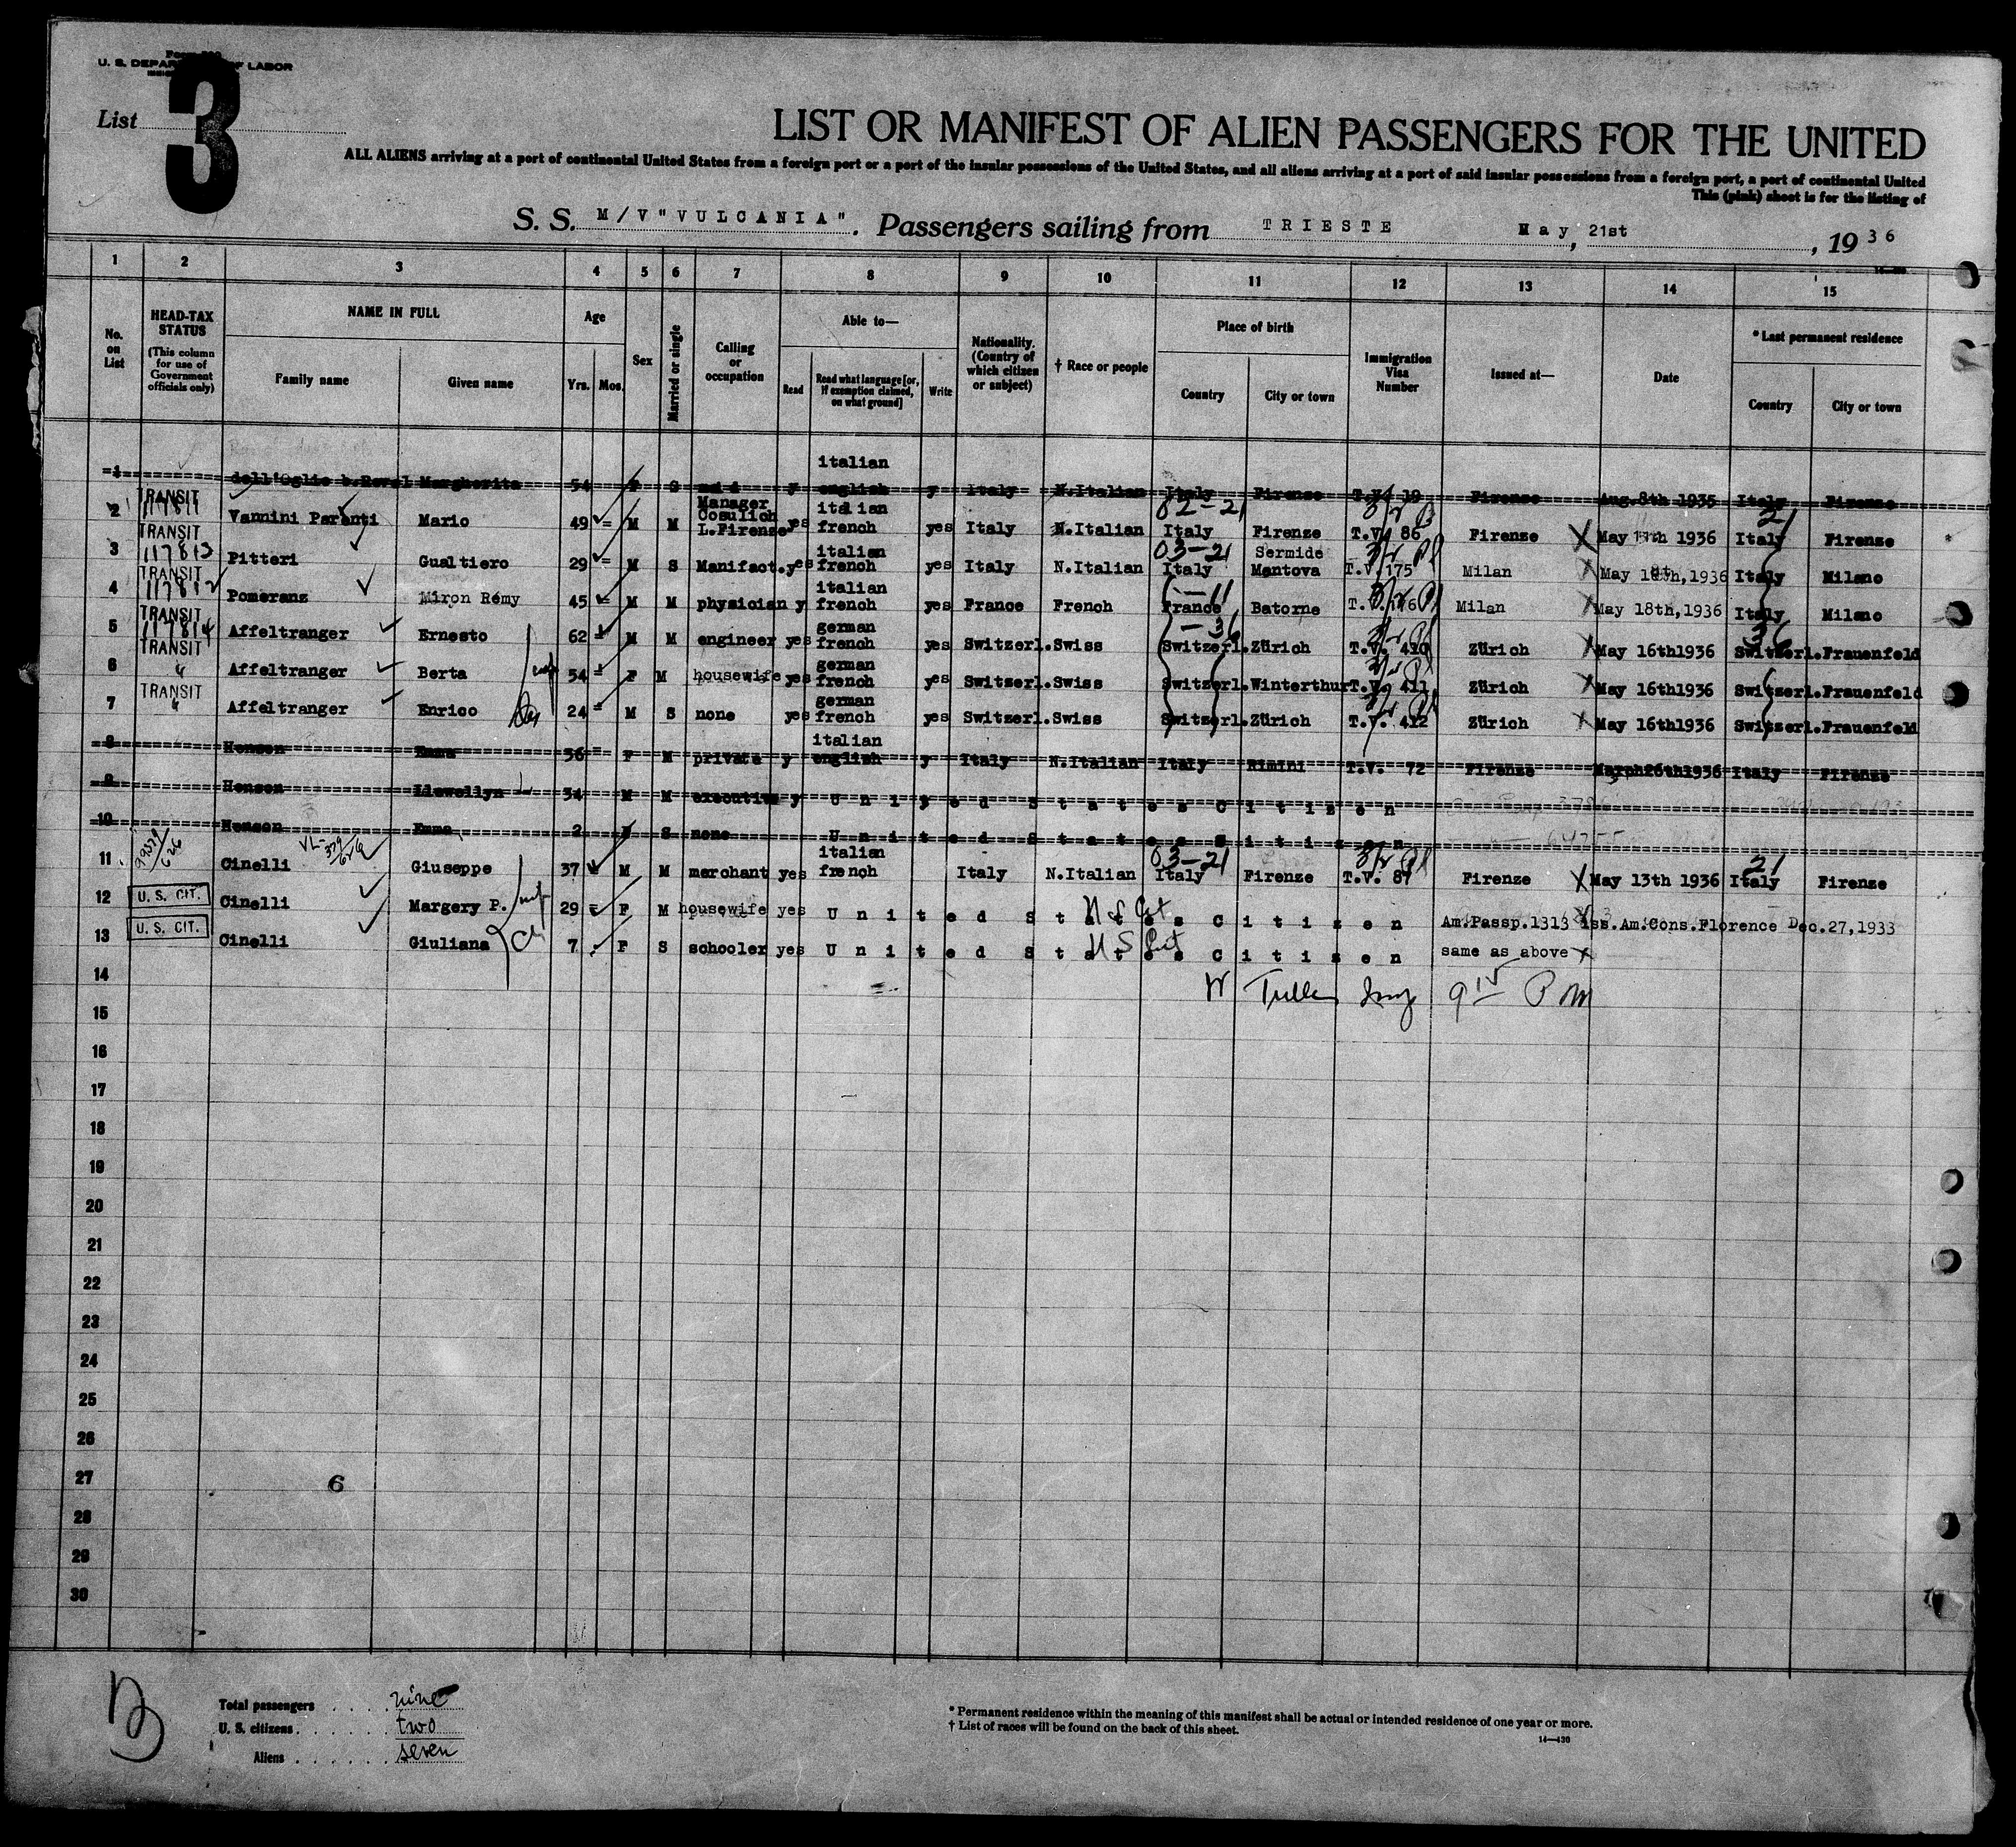 Form 500
U. S. DEPARTMENT OF LABOR
List 3
LIST OR MANIFEST OF ALIEN PASSENGERS FOR THE UNITED
ALL ALIENS arriving at a port of continental United States from a foreign port or a port of the insular possessions of the United States, and all aliens arriving at a port of said insular possessions from a foreign port, a port of continental United
This (pink) sheet is for the listing of
S. S. M/V "VULCANIA". Passengers sailing from TRIESTE May, 21st, 1936
1 2 3 4 5 6 7 8 9 10 11 12 13 14 15
No. on List
HEAD-TAX STATUS (This column for use of Government officials only)
NAME IN FULL
Family name Given name
Age
Yrs. Mos.
Sex
Married or single
Calling or occupation
Able to—
Read Read what language [or, if exemption claimed, on what ground] Write
Nationality. (Country of which citizen or subject)
† Race or people
Place of birth
Country City or town
Immigration Visa Number
Issued at—
Date
* Last permanent residence
Country City or town
1 dell'Oglio b.Reval Margherita 54 F S maid y italian english y Italy N.Italian Italy Firenze T.V. 19 Firenze Aug.8th 1935 Italy Firenze
2 TRANSIT 117811 Vannini Parenti Mario 49 M M Manager Cosulich L.Firenze yes italian french yes Italy N.Italian 02-21 Italy Firenze T.V. 86 Firenze May 1936 21 Italy Firenze
3 TRANSIT 117813 Pitteri Gualtiero 29 M S Manifact. yes italian french yes Italy N.Italian 03-21 Italy Sermide Mantova T.V. 175 Milan May 18th,1936 Italy Milano
4 TRANSIT 117812 Pomeranz Miron Rémy 45 M M physician y italian french yes France French -11 France Batorne T.V. 176 Milan May 18th,1936 Italy Milano
5 TRANSIT 117814 Affeltranger Ernesto 62 M M engineer yes german french yes Switzerl. Swiss -36 Switzerl. Zürich T.V. 410 Zürich May 16th1936 36 Switzerl. Frauenfeld
6 TRANSIT " Affeltranger Berta 54 F M housewife yes german french yes Switzerl. Swiss Switzerl. Winterthur T.V. 411 Zürich May 16th1936 Switzerl. Frauenfeld
7 TRANSIT " Affeltranger Enrico 24 M S none yes german french yes Switzerl. Swiss Switzerl. Zürich T.V. 412 Zürich May 16th1936 Switzerl. Frauenfeld
8 Henson Emma 36 F M private y italian english y Italy N.Italian Italy Rimini T.V. 72 Firenze March26th1936 Italy Firenze
9 Henson Llewellyn 34 M M executive y United States Citizen
10 Henson Emma 2 F S none United States Citizen
11 Cinelli Giuseppe 37 M M merchant yes italian french Italy N.Italian 03-21 Italy Firenze T.V. 87 Firenze May 13th 1936 21 Italy Firenze
12 U. S. CIT. Cinelli Margery P. 29 F M housewife yes United States Citizen Am.Passp.1313 iss.Am.Cons.Florence Dec.27,1933
13 U. S. CIT. Cinelli Giuliana 7 F S schooler yes United States Citizen same as above
14
9 15 P M
15
16
17
18
19
20
21
22
23
24
25
26
27 6
28
29
30
Total passengers . . . . nine
U. S. citizens . . . . . . two
Aliens . . . . . . seven
* Permanent residence within the meaning of this manifest shall be actual or intended residence of one year or more.
† List of races will be found on the back of this sheet.
14—430